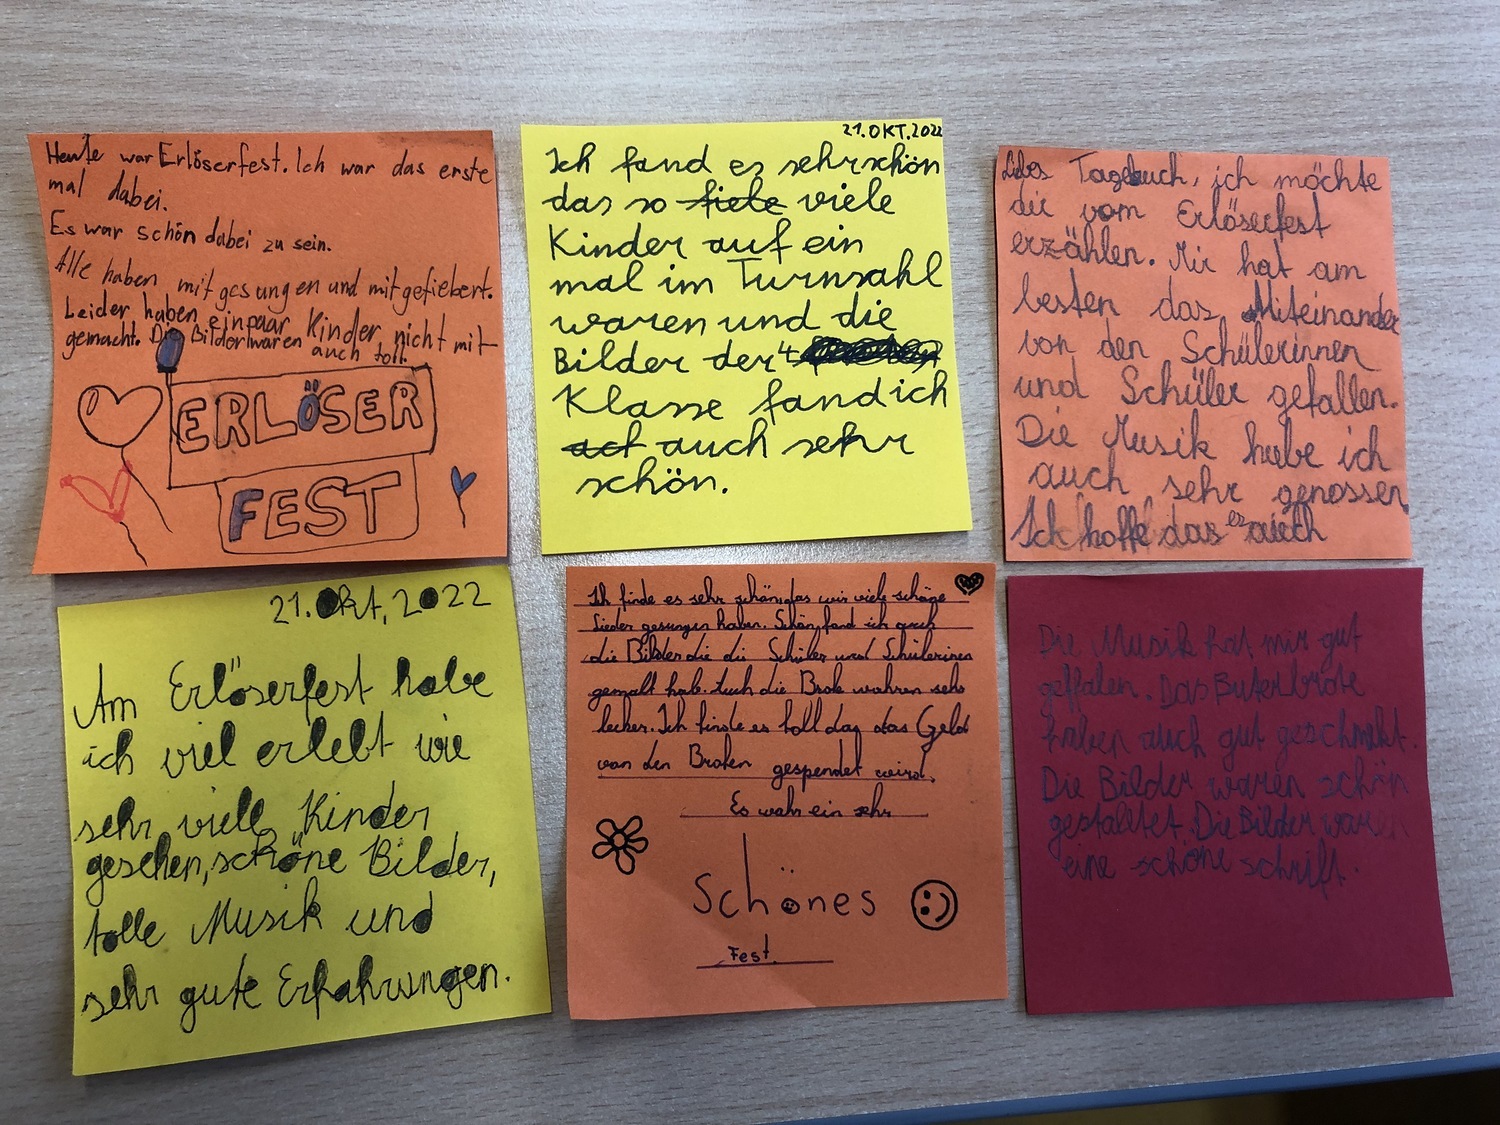 Heute war Erlöserfest. Ich war das erste
mal dabei.
Es war schön dabei zu sein.
Alle haben mitgesungen und mitgefiebert.
Leider haben einpaar Kinder nicht mit-
gemacht. Die Bilder waren auch toll.
ERLÖSER
FEST
21.OKT.2022
Ich fand es sehr schön
das so fiele viele
Kinder auf ein
mal im Turnsahl
waren und die
Bilder der 4.
Klasse fand ich
act auch sehr
schön.
Libes Tagebuch, ich möchte
dir vom Erlöserfest
erzählen. Mir hat am
besten das Miteinander
von den Schülerinnen
und Schüler gefallen.
Die Musik habe ich
auch sehr genossen.
Ich hoffe das es auch
21. Okt, 2022
Am Erlöserfest habe
ich viel erlebt wie
sehr viele Kinder
gesehen, schöne Bilder,
tolle Musik und
sehr gute Erfahrungen.
Ich finde es sehr schön, das wir viele schöne
Lieder gesungen haben. Schön fand ich auch
die Bilder die die Schüler und Schülerinen
gemalt hab. Auch die Brote wahren sehr
lecker. Ich finde es toll das das Geld
von den Broten gespendet wird.
Es wahr ein sehr
Schönes
Fest.
Die Musik hat mir gut
geffalen. Das Buterbrote
haben auch gut geschmekt.
Die Bilder waren schön
gestalltet. Die Bilder waren
eine schöne schrift.